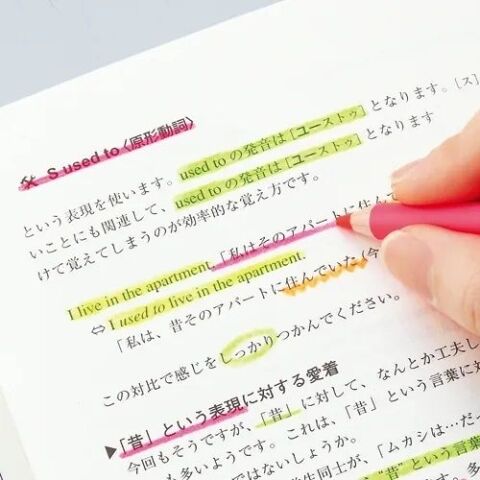 S used to〈原形動詞〉
という表現を使います。used to の発音は［ユーストゥ］となります。［ス］
いことにも関連して、used to の発音は［ユーストゥ］となります
けて覚えてしまうのが効率的な覚え方です。
I live in the apartment.「私はそのアパートに住んで
⇔ I used to live in the apartment.
「私は、昔そのアパートに住んでいた（今
この対比で感じをしっかりつかんでください。
▶「昔」という表現に対する愛着
今回もそうですが、「昔」に対して、なんとか工夫し
も多いようです。これは、「昔」という言葉に対
ではないでしょうか。
生同士が、「ムカシは…だっ
"昔"という言